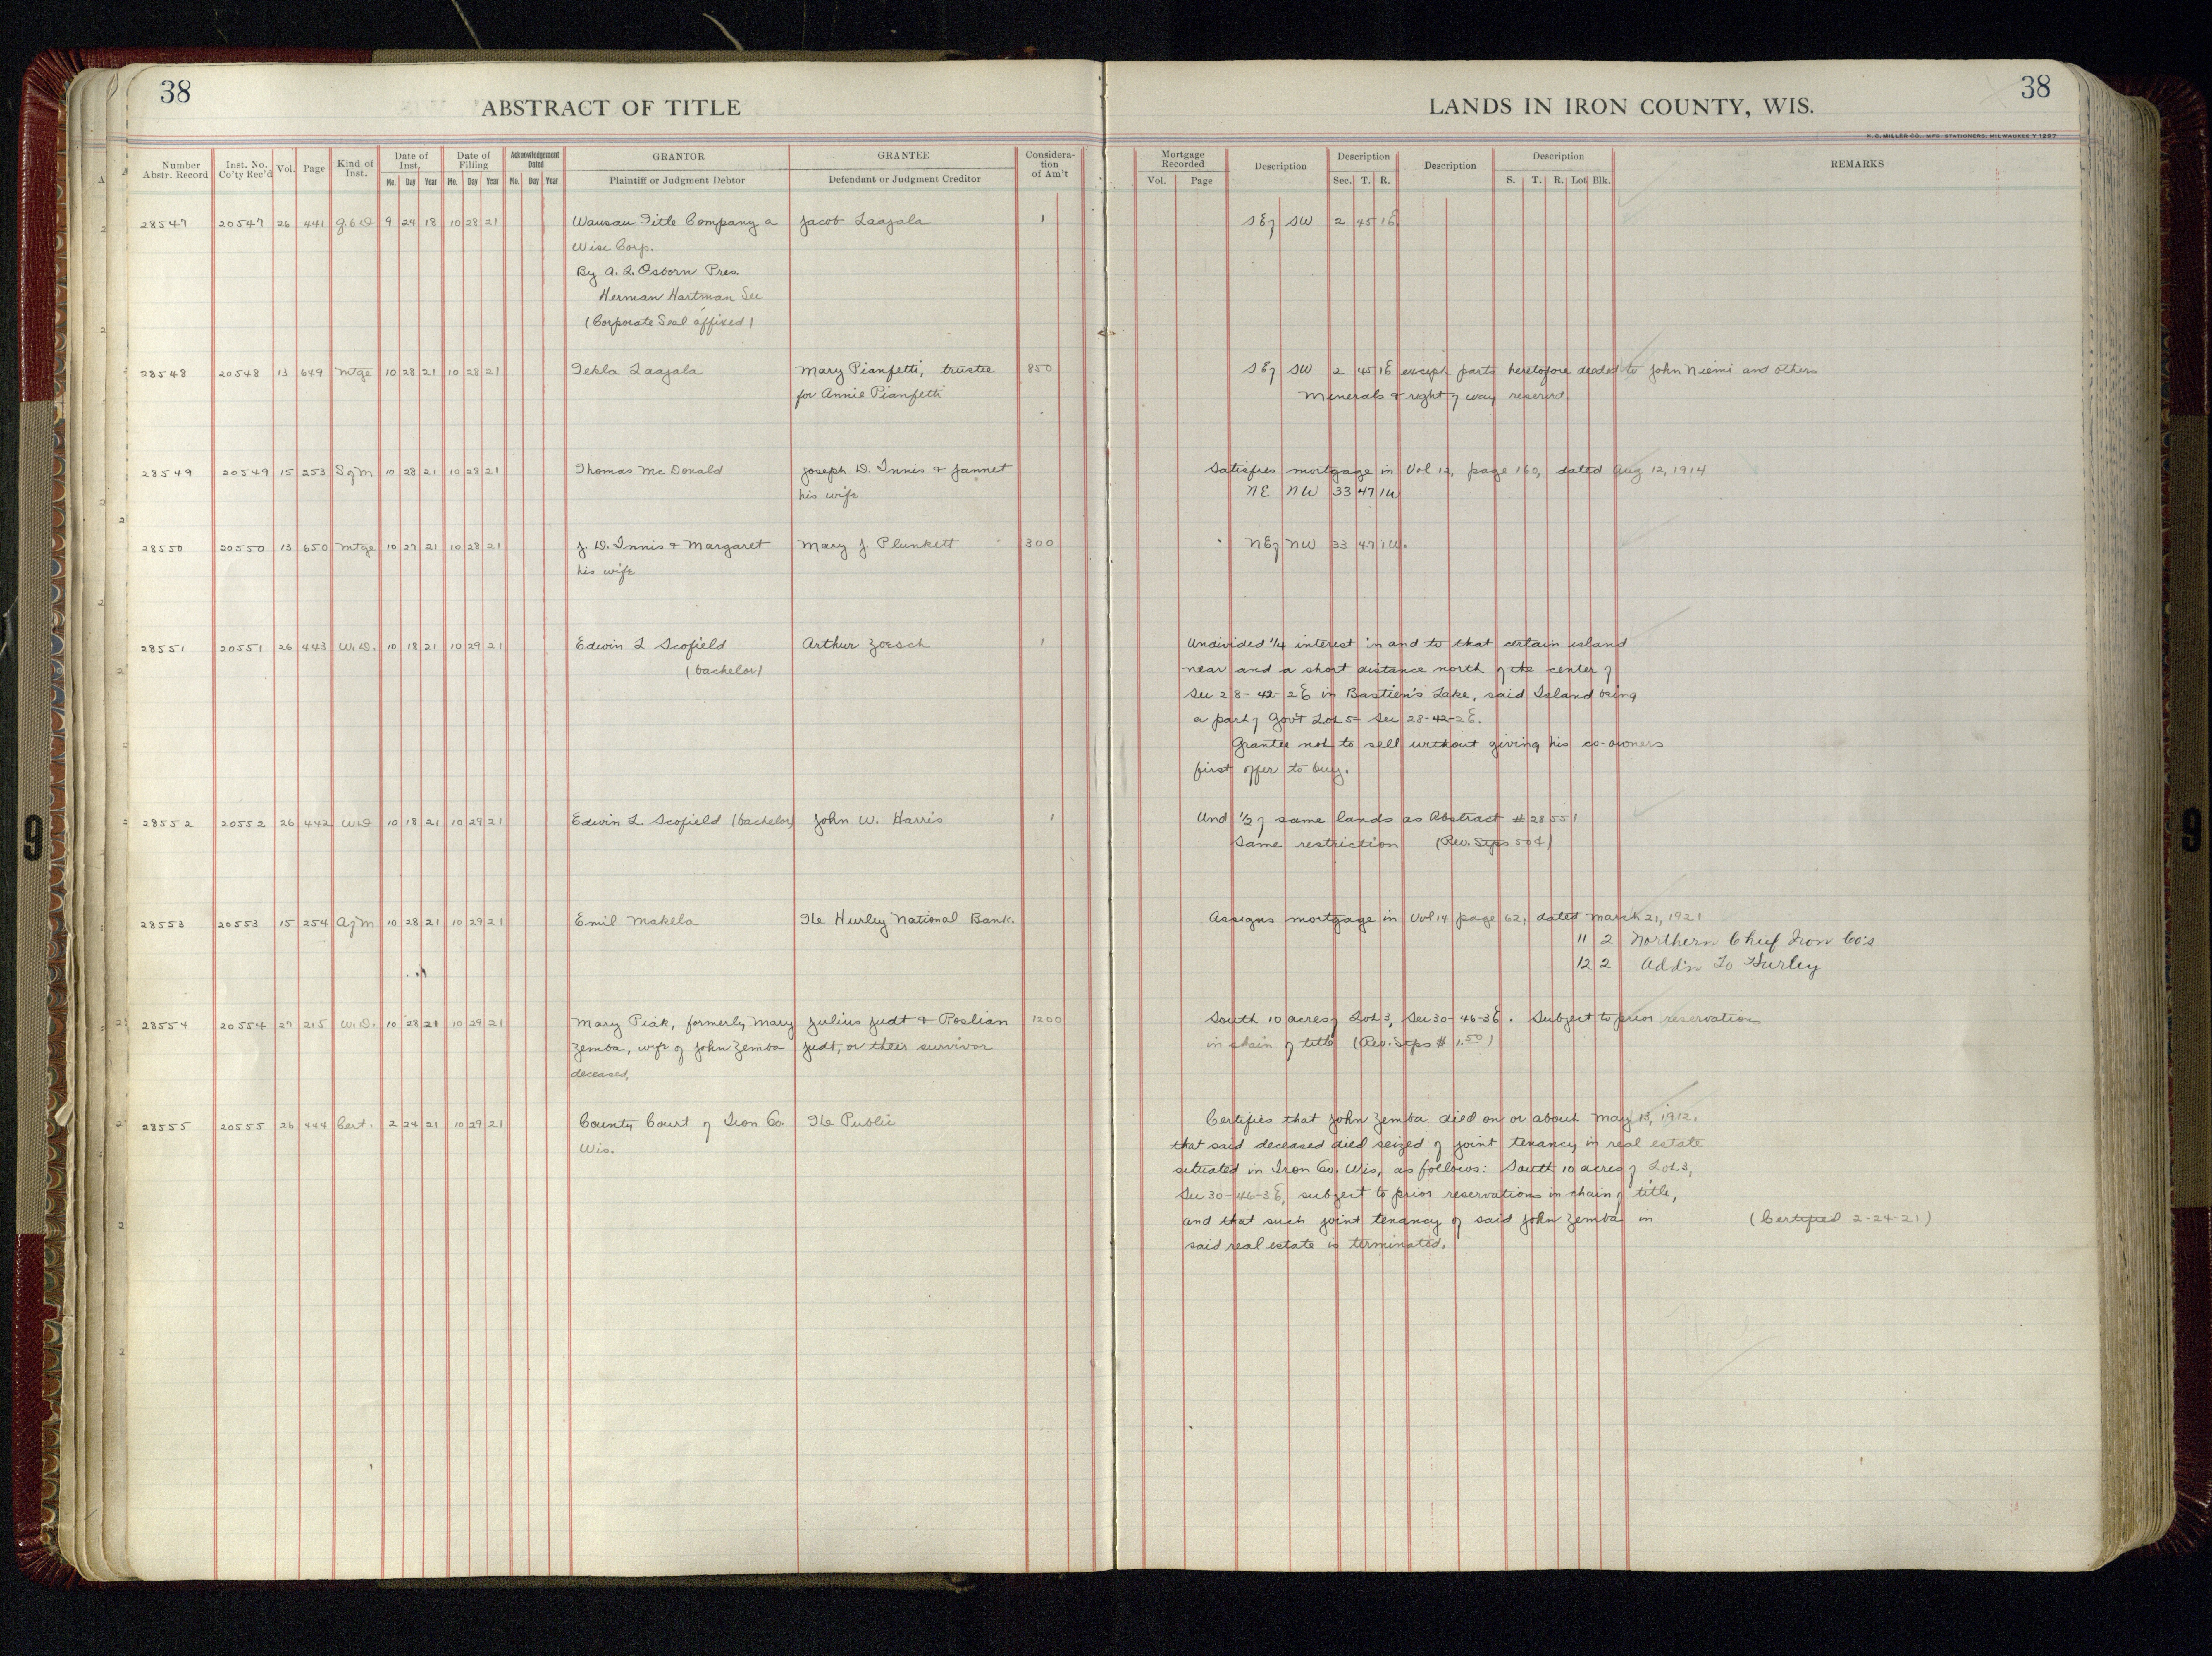 38
ABSTRACT OF TITLE
LANDS IN IRON COUNTY, WIS.
38
H. C. MILLER CO., MFG. STATIONERS, MILWAUKEE Y 1297
Number Abstr. Record | Inst. No. Co'ty Rec'd | Vol. | Page | Kind of Inst. | Date of Inst. Mo. Day Year | Date of Filling Mo. Day Year | Acknowledgement Dated Mo. Day Year | GRANTOR Plaintiff or Judgment Debtor | GRANTEE Defendant or Judgment Creditor | Consideration of Am't | Mortgage Recorded Vol. Page | Description | Description Sec. T. R. | Description | Description S. T. R. Lot Blk. | REMARKS
28547 20547 26 441 Q.C.D 9 24 18 10 28 21 Wausau Title Company a Jacob Laajala 1 SEj SW 2 45 1E
Wisc Corp.
By A. L. Osborn Pres.
Herman Hartman Sec
(Corporate Seal affixed)
28548 20548 13 649 Mtge 10 28 21 10 28 21 Tekla Laajala Mary Pianfetti, trustee 850 SEj SW 2 45 1E except parts heretofore deeded to John Niemi and others
for Annie Pianfetti Minerals & right of way reserved.
28549 20549 15 253 SofM 10 28 21 10 28 21 Thomas McDonald Joseph D. Innis & Jannet Satisfies mortgage in Vol 12, page 160, dated Aug 12, 1914
his wife NE NW 33 47 1W
28550 20550 13 650 Mtge 10 27 21 10 28 21 J. D. Innis & Margaret Mary J. Plunkett 300 NEj NW 33 47 1W.
his wife
28551 20551 26 443 W.D. 10 18 21 10 29 21 Edwin L Scofield Arthur Zoesch 1 Undivided 1/4 interest in and to that certain island
(bachelor) near and a short distance north of the center of
Sec 28-42-2E in Bastien's Lake, said Island being
a part of Gov't Lot 5- Sec 28-42-2E.
Grantee not to sell without giving his co-owners
first offer to buy.
28552 20552 26 442 W.D 10 18 21 10 29 21 Edwin L. Scofield (bachelor) John W. Harris 1 Und 1/2 of same lands as Abstract #28551
Same restriction (Rev. Stps 50¢)
28553 20553 15 254 AofM 10 28 21 10 29 21 Emil Makela The Hurley National Bank. Assigns mortgage in Vol 14 page 62, dated March 21, 1921
11 2 Northern Chief Iron Co's
12 2 Add'n To Hurley
28554 20554 27 215 W.D. 10 28 21 10 29 21 Mary Piak, formerly Mary Julius Judt & Roslian 1200 South 10 acres of Lot 3, Sec 30-46-3E. Subject to prior reservations
Zemba, wife of John Zemba Judt, or their survivor in chain of title (Rev. Stps $1.50)
deceased,
28555 20555 26 444 Cert. 2 24 21 10 29 21 County Court of Iron Co. The Public Certifies that John Zemba died on or about May 13, 1912.
Wis. that said deceased died seized of joint tenancy in real estate
situated in Iron Co. Wis, as follows: South 10 acres of Lot 3,
Sec 30-46-3E, subject to prior reservations in chain of title,
and that such joint tenancy of said John Zemba in (Certified 2-24-21)
said real estate is terminated.
9
9